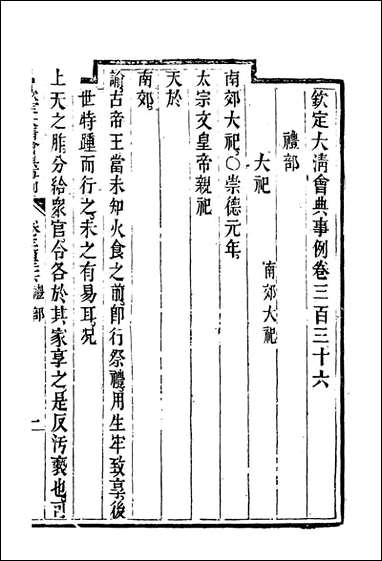 欽定大清會典事例卷三百三十六
禮部
大祀 南郊大祀
南郊大祀○崇德元年
太宗文皇帝親祀
天於
南郊
諭古帝王當未知火食之前卽行祭禮用生牢致享後
世特踵而行之未之有易耳況
上天之胙分給衆官令各於其家享之是反汚褻也可
禮部 一